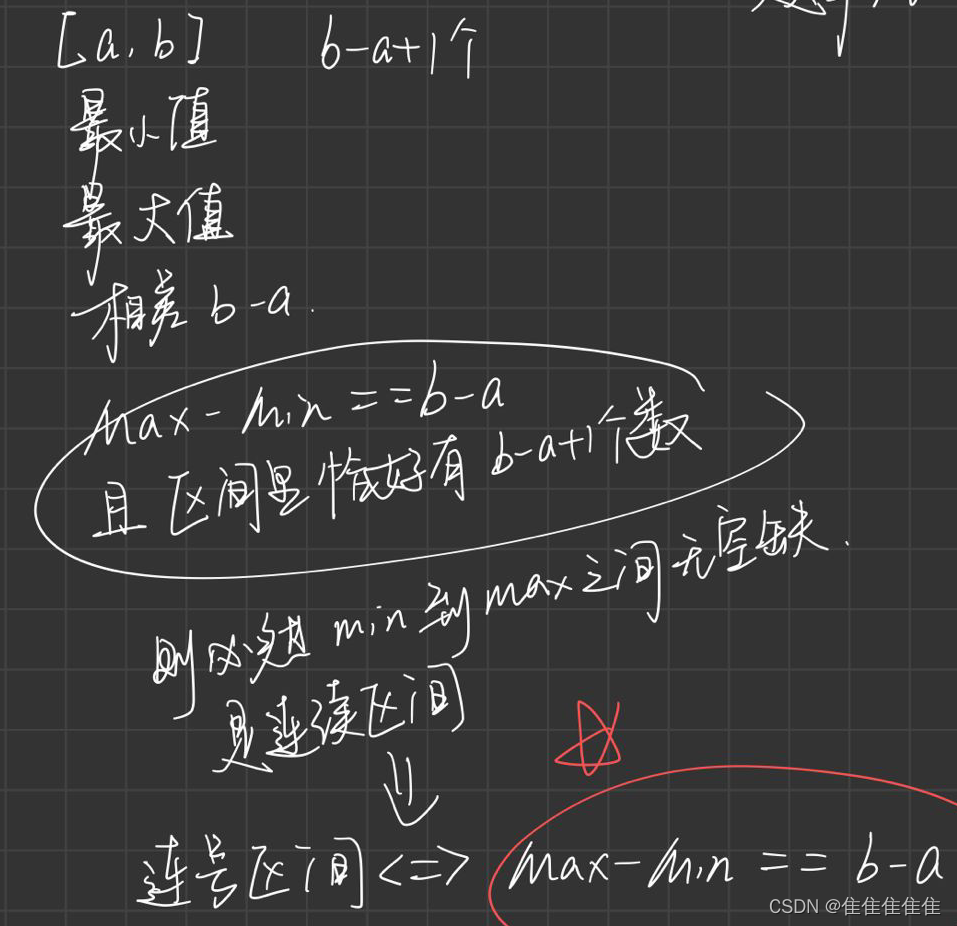 [a,b] b-a+1个
最小值
最大值
相差 b-a.
max-min==b-a
且 区间里恰好有 b-a+1个数
则必然 min到max之间无空缺.
是连续区间
连号区间<=> max-min == b-a
CSDN @隹隹隹隹隹